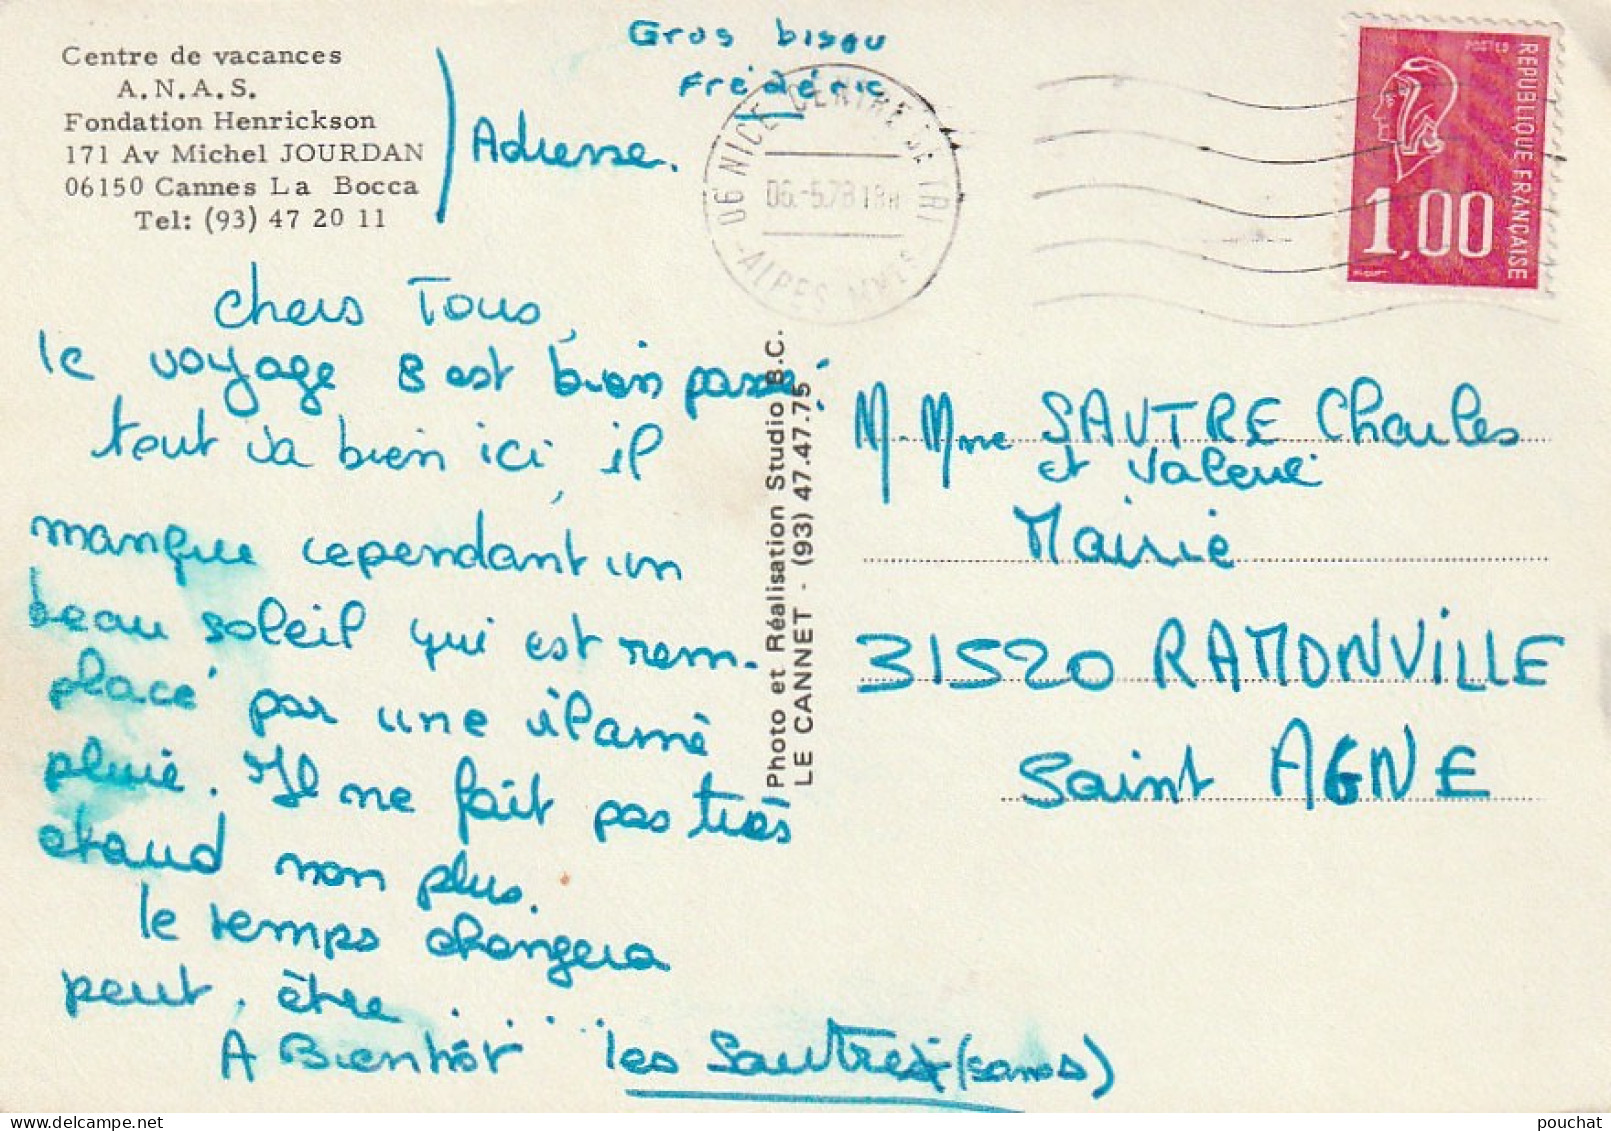 Centre de vacances
A.N.A.S.
Fondation Henrickson
171 Av Michel JOURDAN
06150 Cannes La Bocca
Tel: (93) 47 20 11
Adresse.
Gros bisou
Frédéric
06 NICE CENTRE DE TRI
06.-5.78 18H
ALPES MMES
POSTES
REPUBLIQUE FRANÇAISE
1,00
chers Tous,
le voyage s est bien passé
tout va bien ici, il
manque cependant un
beau soleil qui est rem-
placé par une
pluie. Il ne fait pas très
chaud non plus.
le temps changera
peut, être . . . . .
A Bientôt les Sautre (sans)
Photo et Réalisation Studio B.C.
LE CANNET - (93) 47.47.75
M. Mme SAUTRE Charles
et Valerie
Mairie
31520 RAMONVILLE
Saint AGNE
pouchat